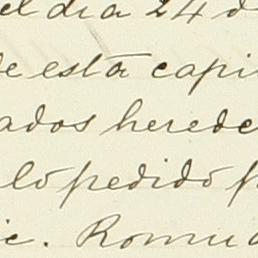 el dia 24 d
de esta capi
ados herede
lo pedido p
ic. Romua